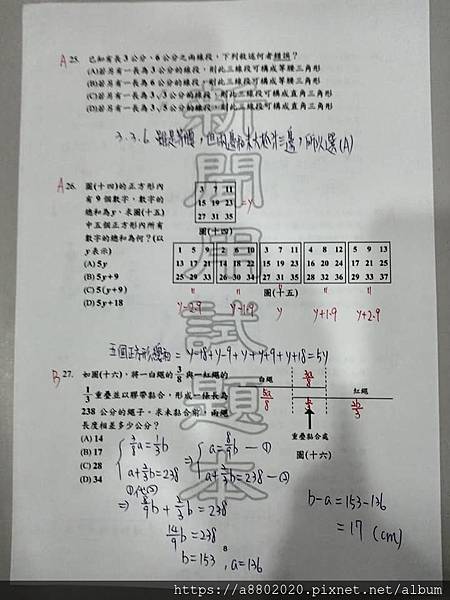 A 25. 已知有長3公分、6公分之兩線段，下列敘述何者錯誤？
(A)若另有一長為3公分的線段，則此三線段可構成等腰三角形
(B)若另有一長為6公分的線段，則此三線段可構成等腰三角形
(C)若另有一長為3√3公分的線段，則此三線段可構成直角三角形
(D)若另有一長為3√5公分的線段，則此三線段可構成直角三角形
3.3.6 雖是等腰，但兩邊和未大於第三邊，所以選(A)
A 26. 圖(十四)的正方形內
有9個數字，數字的
總和為y，求圖(十五)
中五個正方形內所有
數字的總和為何？(以
y表示)
(A) 5y
(B) 5y+9
(C) 5(y+9)
(D) 5y+18
3 7 11
15 19 23 =y
27 31 35
圖(十四)
1 5 9 2 6 10 3 7 11 4 8 12 5 9 13
13 17 21 14 18 22 15 19 23 16 20 24 17 21 25
25 29 33 26 30 34 27 31 35 28 32 36 29 33 37
圖(十五)
y-2·9 y-1·9 y y+1·9 y+2·9
五個正方形總和 = y-18+y-9+y+y+9+y+18=5y
B 27. 如圖(十六)，將一白繩的3/8與一紅繩的
1/3重疊並以膠帶黏合，形成一條長為
238公分的繩子，求未黏合前，兩繩
長度相差多少公分？
(A) 14
(B) 17
(C) 28
(D) 34
白繩 3a/8 紅繩
5a/8 b/3 2b/3
重疊黏合處
圖(十六)
3/8a=1/3b ⇒ a=8/9b —①
a+2/3b=238 a+2/3b=238 —②
①代②
⇒ 8/9b+2/3b=238
14/9b=238
b=153, a=136
b-a=153-136
=17 (cm)
8
新聞用試題本
https://a8802020.pixnet.net/album